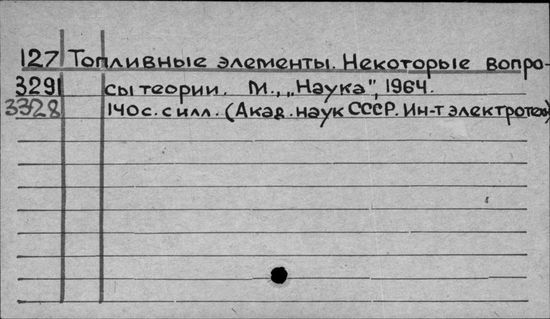 127 Топливные элементы. Некоторые вопро-
3291 сы теории. М., „Наука", 1964.
3328 140 с. с илл. (Акад. наук СССР. Ин-т электротех)